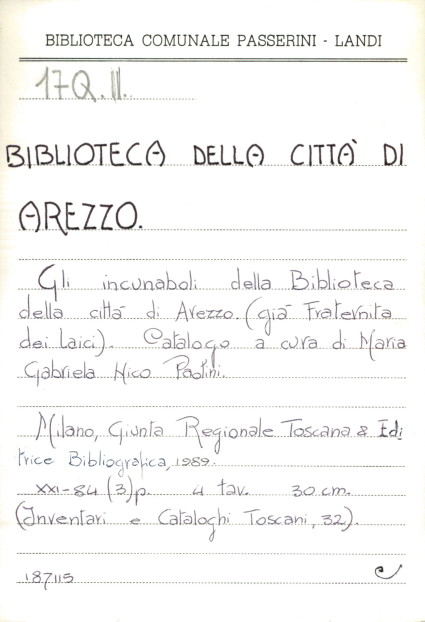 BIBLIOTECA COMUNALE PASSERINI - LANDI
17Q.II.
BIBLIOTECA DELLA CITTA' DI
AREZZO.
Gli incunaboli della Biblioteca
della città di Arezzo. (già Fraternita
dei Laici). Catalogo a cura di Maria
Gabriela Nico Paolini.
Milano, Giunta Regionale Toscana & Edi
trice Bibliografica, 1989.
XXI-84 (3)p. 4 tav. 30 cm.
(Inventari e Cataloghi Toscani, 32).
187115